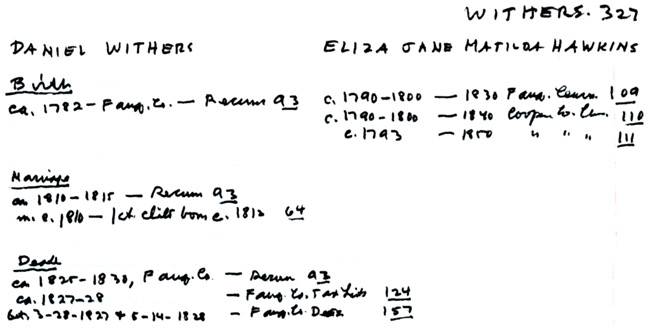 WITHERS. 327
DANIEL WITHERS
ELIZA JANE MATILDA HAWKINS
Birth
ca. 1782 - Fauq. Co. - 93
c. 1790-1800 - 1830 Fauq. Census 109
c. 1790-1800 - 1840 Cooper Co. Cen. 110
c. 1793 - 1850 " " " 111
Marriage
1810-1815 - 93
m. c. 1810 - 1st child born c. 1812 64
Death
ca 1825-1830, Fauq. Co. - 93
ca. 1827-28 - Fauq. Co. Tax Lists 124
bet. 3-28-1827 & 5-14-1828 - Fauq. Co. Deed 157